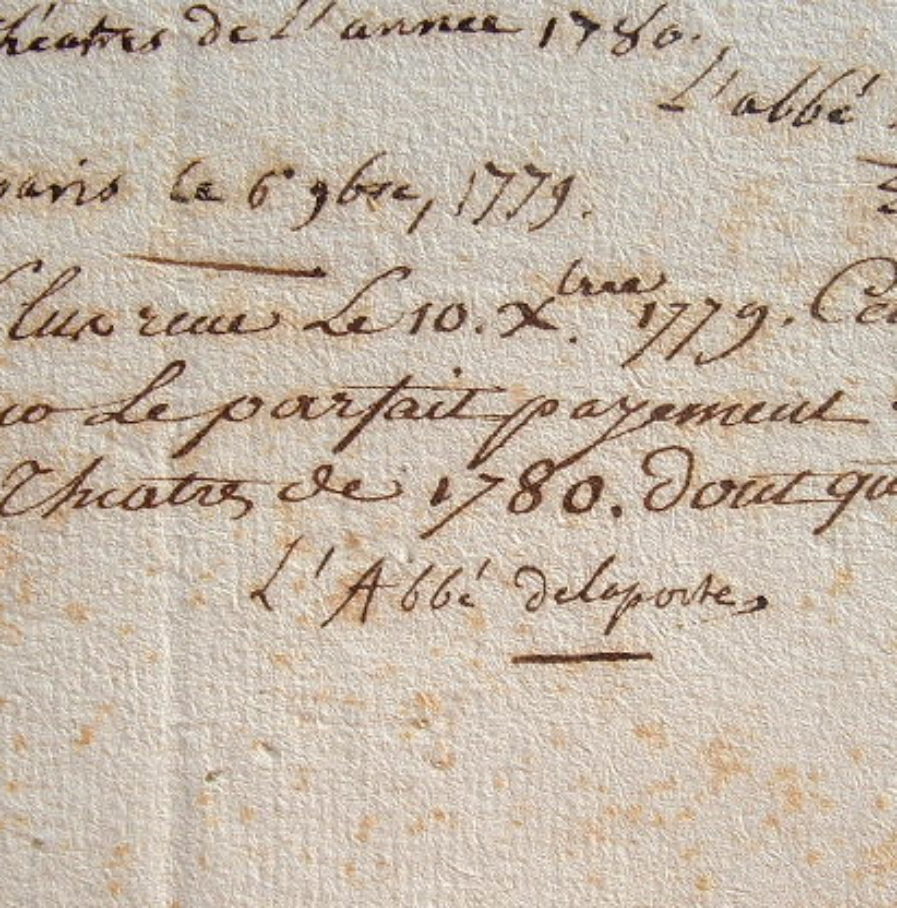 théatres de l'année 1780.,
L'abbé
paris le 6e 9bre, 1779.
Plus reçu Le 10. Xbree 1779.
Le parfait payement
Theatres de 1780. dont
L'Abbé delaporte,